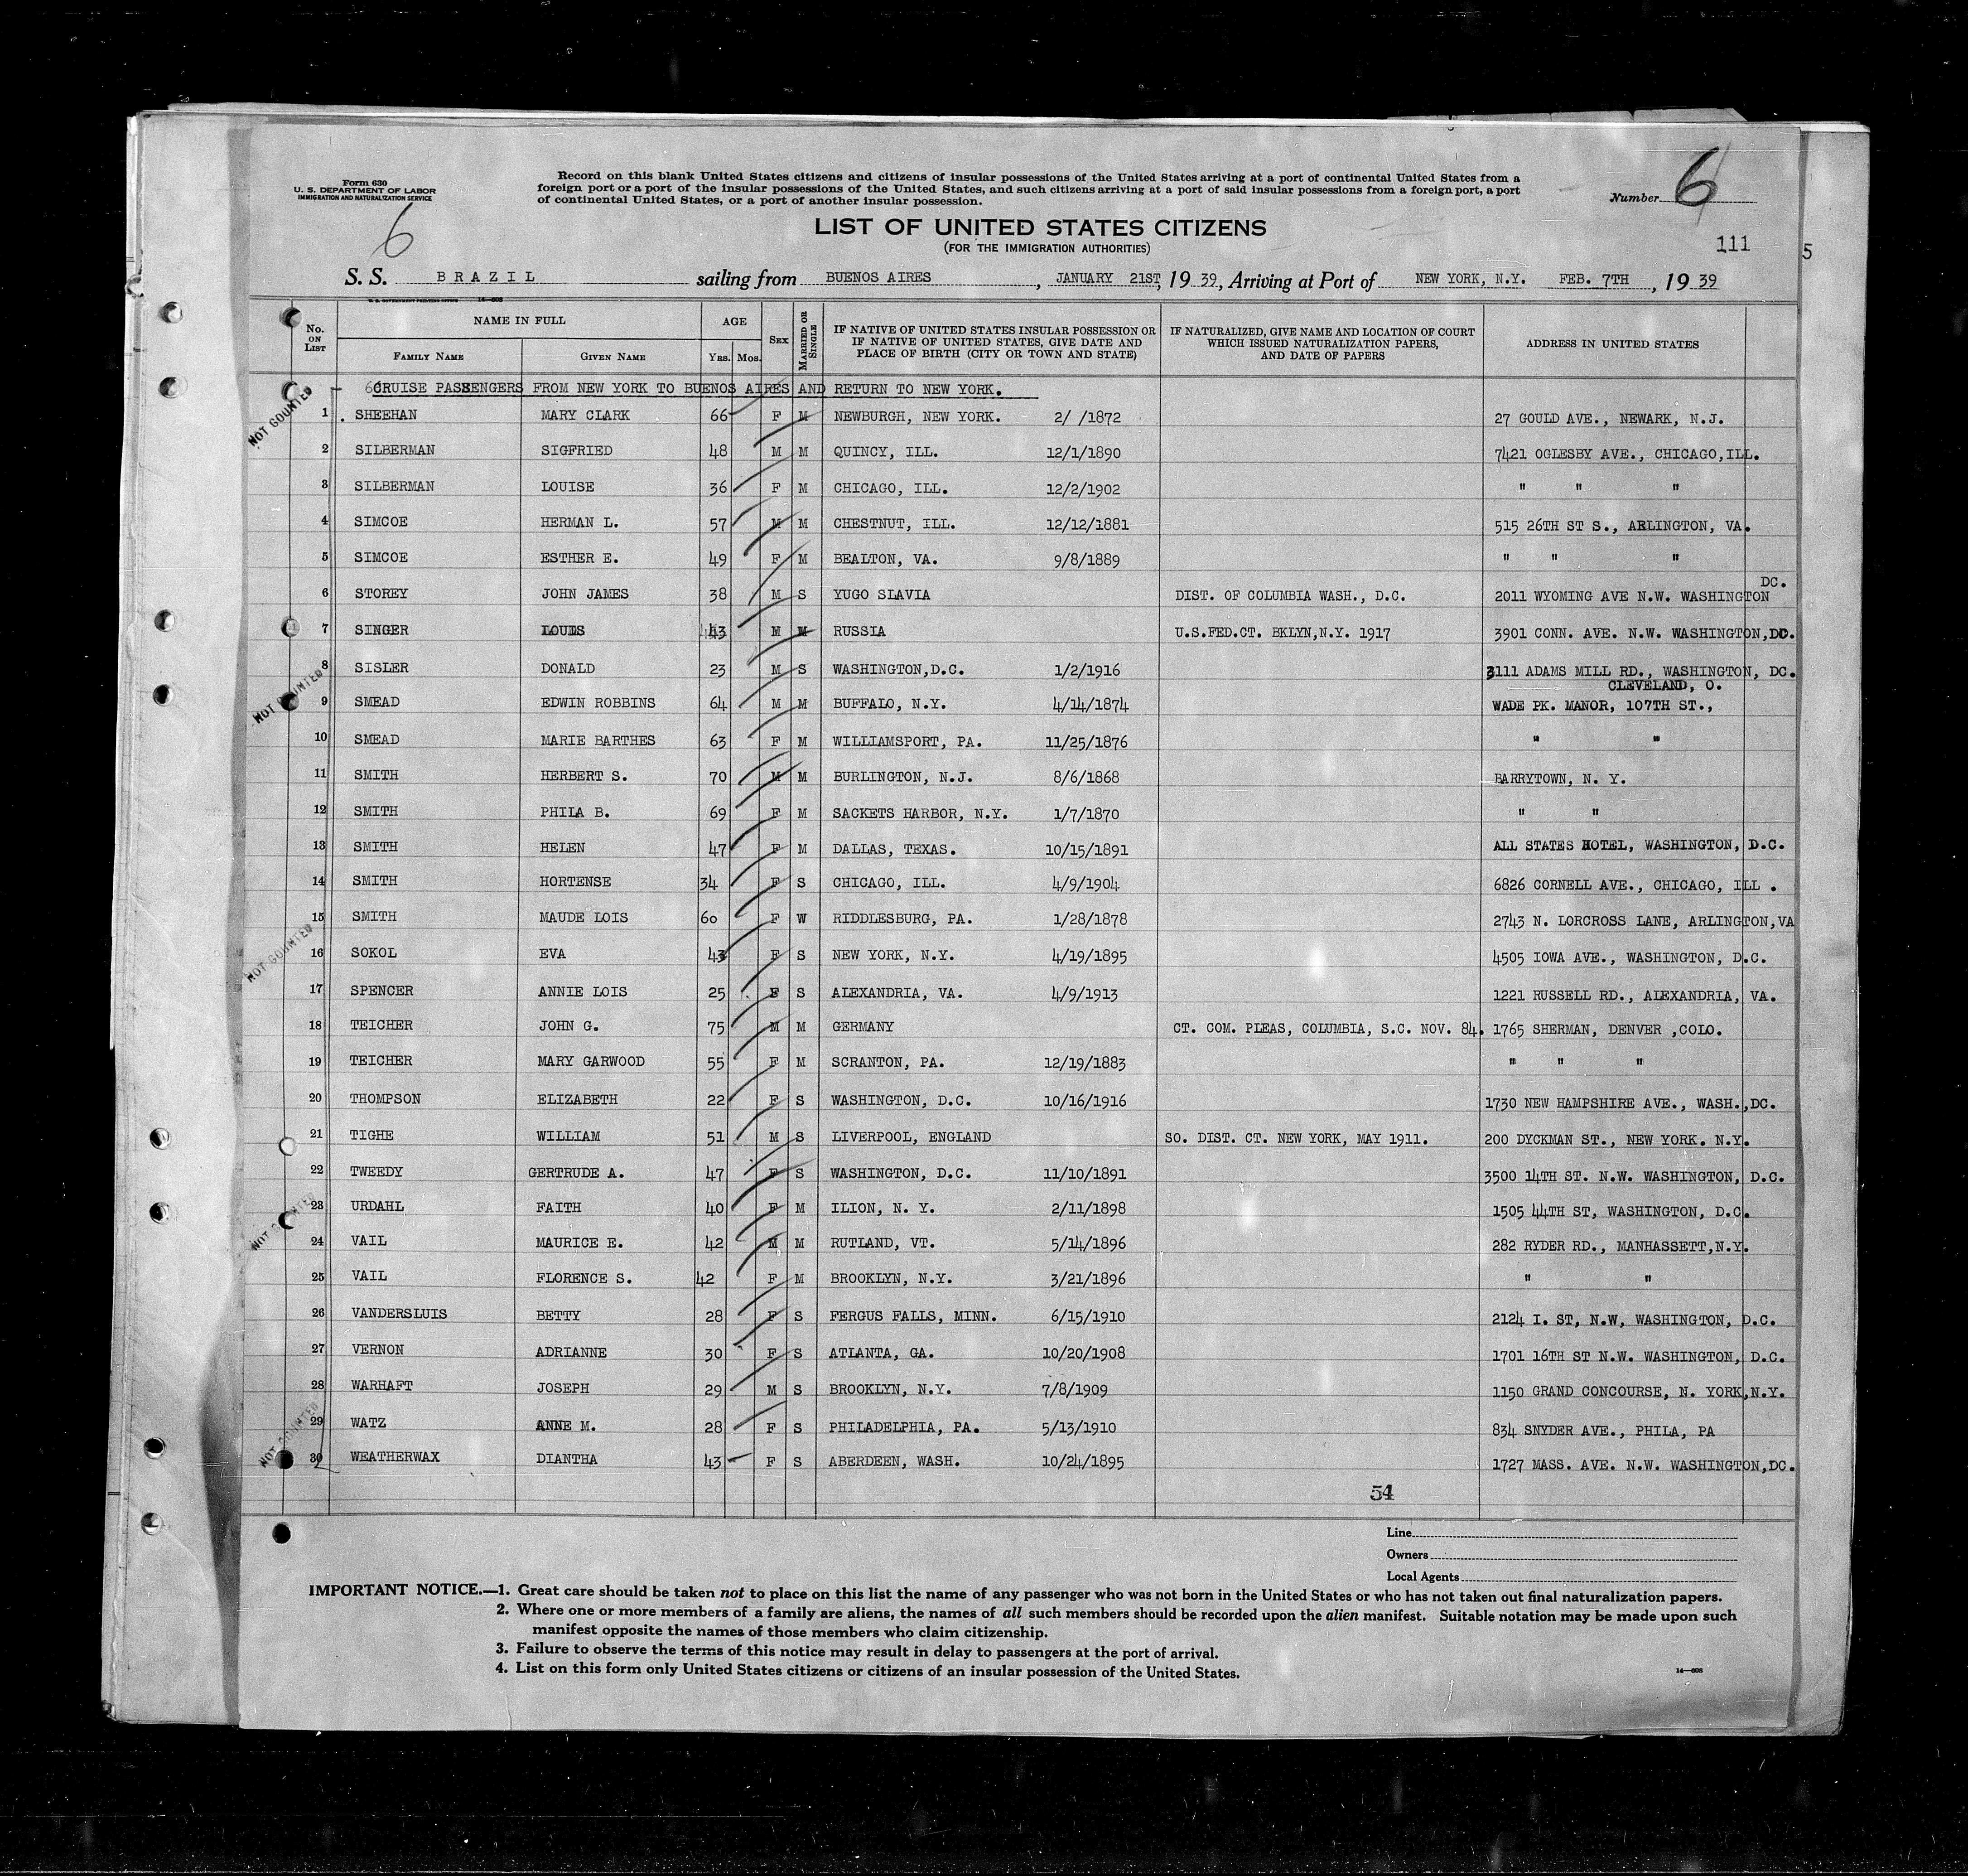 Form 630
U. S. DEPARTMENT OF LABOR
IMMIGRATION AND NATURALIZATION SERVICE
Record on this blank United States citizens and citizens of insular possessions of the United States arriving at a port of continental United States from a
foreign port or a port of the insular possessions of the United States, and such citizens arriving at a port of said insular possessions from a foreign port, a port
of continental United States, or a port of another insular possession.
Number 6
6
LIST OF UNITED STATES CITIZENS
(FOR THE IMMIGRATION AUTHORITIES)
111
5
S. S. BRAZIL sailing from BUENOS AIRES, JANUARY 21ST, 19 39, Arriving at Port of NEW YORK, N.Y. FEB. 7TH, 19 39
U. S. GOVERNMENT PRINTING OFFICE 14—608
No. ON LIST NAME IN FULL FAMILY NAME GIVEN NAME AGE YRS. MOS. SEX MARRIED OR SINGLE IF NATIVE OF UNITED STATES INSULAR POSSESSION OR IF NATIVE OF UNITED STATES, GIVE DATE AND PLACE OF BIRTH (CITY OR TOWN AND STATE) IF NATURALIZED, GIVE NAME AND LOCATION OF COURT WHICH ISSUED NATURALIZATION PAPERS, AND DATE OF PAPERS ADDRESS IN UNITED STATES
CRUISE PASSENGERS FROM NEW YORK TO BUENOS AIRES AND RETURN TO NEW YORK.
NOT COUNTED
1 SHEEHAN MARY CLARK 66 F M NEWBURGH, NEW YORK. 2/ /1872 27 GOULD AVE., NEWARK, N.J.
2 SILBERMAN SIGFRIED 48 M M QUINCY, ILL. 12/1/1890 7421 OGLESBY AVE., CHICAGO,ILL.
3 SILBERMAN LOUISE 36 F M CHICAGO, ILL. 12/2/1902 " " "
4 SIMCOE HERMAN L. 57 M M CHESTNUT, ILL. 12/12/1881 515 26TH ST S., ARLINGTON, VA.
5 SIMCOE ESTHER E. 49 F M BEALTON, VA. 9/8/1889 " " "
6 STOREY JOHN JAMES 38 M S YUGO SLAVIA DIST. OF COLUMBIA WASH., D.C. 2011 WYOMING AVE N.W. WASHINGTON DC.
7 SINGER LOUIS 43 M M RUSSIA U.S.FED.CT. BKLYN,N.Y. 1917 3901 CONN. AVE. N.W. WASHINGTON,DC.
8 SISLER DONALD 23 M S WASHINGTON,D.C. 1/2/1916 3111 ADAMS MILL RD., WASHINGTON, DC.
NOT COUNTED
9 SMEAD EDWIN ROBBINS 64 M M BUFFALO, N.Y. 4/14/1874 WADE PK. MANOR, 107TH ST., CLEVELAND, O.
10 SMEAD MARIE BARTHES 63 F M WILLIAMSPORT, PA. 11/25/1876 " "
11 SMITH HERBERT S. 70 M M BURLINGTON, N.J. 8/6/1868 BARRYTOWN, N. Y.
12 SMITH PHILA B. 69 F M SACKETS HARBOR, N.Y. 1/7/1870 " "
13 SMITH HELEN 47 F M DALLAS, TEXAS. 10/15/1891 ALL STATES HOTEL, WASHINGTON, D.C.
14 SMITH HORTENSE 34 F S CHICAGO, ILL. 4/9/1904 6826 CORNELL AVE., CHICAGO, ILL .
15 SMITH MAUDE LOIS 60 F W RIDDLESBURG, PA. 1/28/1878 2743 N. LORCROSS LANE, ARLINGTON,VA
NOT COUNTED
16 SOKOL EVA 43 F S NEW YORK, N.Y. 4/19/1895 4505 IOWA AVE., WASHINGTON, D.C.
17 SPENCER ANNIE LOIS 25 F S ALEXANDRIA, VA. 4/9/1913 1221 RUSSELL RD., ALEXANDRIA, VA.
18 TEICHER JOHN G. 75 M M GERMANY CT. COM. PLEAS, COLUMBIA, S.C. NOV. 84. 1765 SHERMAN, DENVER ,COLO.
19 TEICHER MARY GARWOOD 55 F M SCRANTON, PA. 12/19/1883 " " "
20 THOMPSON ELIZABETH 22 F S WASHINGTON, D.C. 10/16/1916 1730 NEW HAMPSHIRE AVE., WASH.,DC.
21 TIGHE WILLIAM 51 M S LIVERPOOL, ENGLAND SO. DIST. CT. NEW YORK, MAY 1911. 200 DYCKMAN ST., NEW YORK. N.Y.
22 TWEEDY GERTRUDE A. 47 F S WASHINGTON, D.C. 11/10/1891 3500 14TH ST. N.W. WASHINGTON, D.C.
NOT COUNTED
23 URDAHL FAITH 40 F M ILION, N. Y. 2/11/1898 1505 44TH ST, WASHINGTON, D.C.
24 VAIL MAURICE E. 42 M M RUTLAND, VT. 5/14/1896 282 RYDER RD., MANHASSETT,N.Y.
25 VAIL FLORENCE S. 42 F M BROOKLYN, N.Y. 3/21/1896 " "
26 VANDERSLUIS BETTY 28 F S FERGUS FALLS, MINN. 6/15/1910 2124 I. ST, N.W, WASHINGTON, D.C.
27 VERNON ADRIANNE 30 F S ATLANTA, GA. 10/20/1908 1701 16TH ST N.W. WASHINGTON, D.C.
28 WARHAFT JOSEPH 29 M S BROOKLYN, N.Y. 7/8/1909 1150 GRAND CONCOURSE, N. YORK,N.Y.
29 WATZ ANNE M. 28 F S PHILADELPHIA, PA. 5/13/1910 834 SNYDER AVE., PHILA, PA
NOT COUNTED
30 WEATHERWAX DIANTHA 43 F S ABERDEEN, WASH. 10/24/1895 1727 MASS. AVE. N.W. WASHINGTON,DC.
54
Line
Owners
Local Agents
IMPORTANT NOTICE.—1. Great care should be taken not to place on this list the name of any passenger who was not born in the United States or who has not taken out final naturalization papers.
2. Where one or more members of a family are aliens, the names of all such members should be recorded upon the alien manifest. Suitable notation may be made upon such
manifest opposite the names of those members who claim citizenship.
3. Failure to observe the terms of this notice may result in delay to passengers at the port of arrival.
4. List on this form only United States citizens or citizens of an insular possession of the United States.
14—608